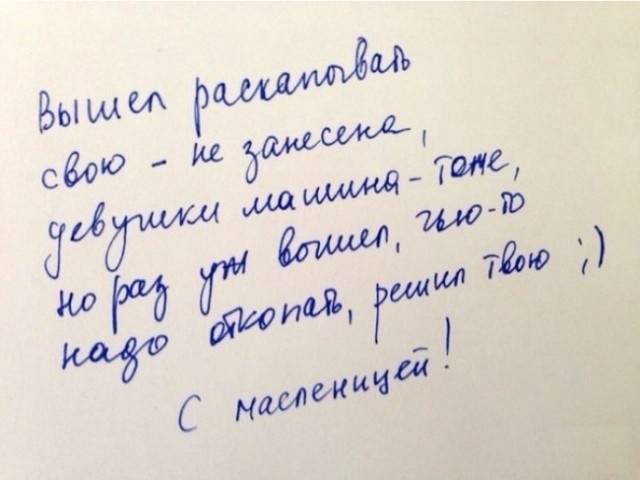 Вышел раскапывать
свою - не занесена,
девушки машина - тоже,
но раз уж вышел, чью-то
надо откопать, решил твою ;)
С масленицей!